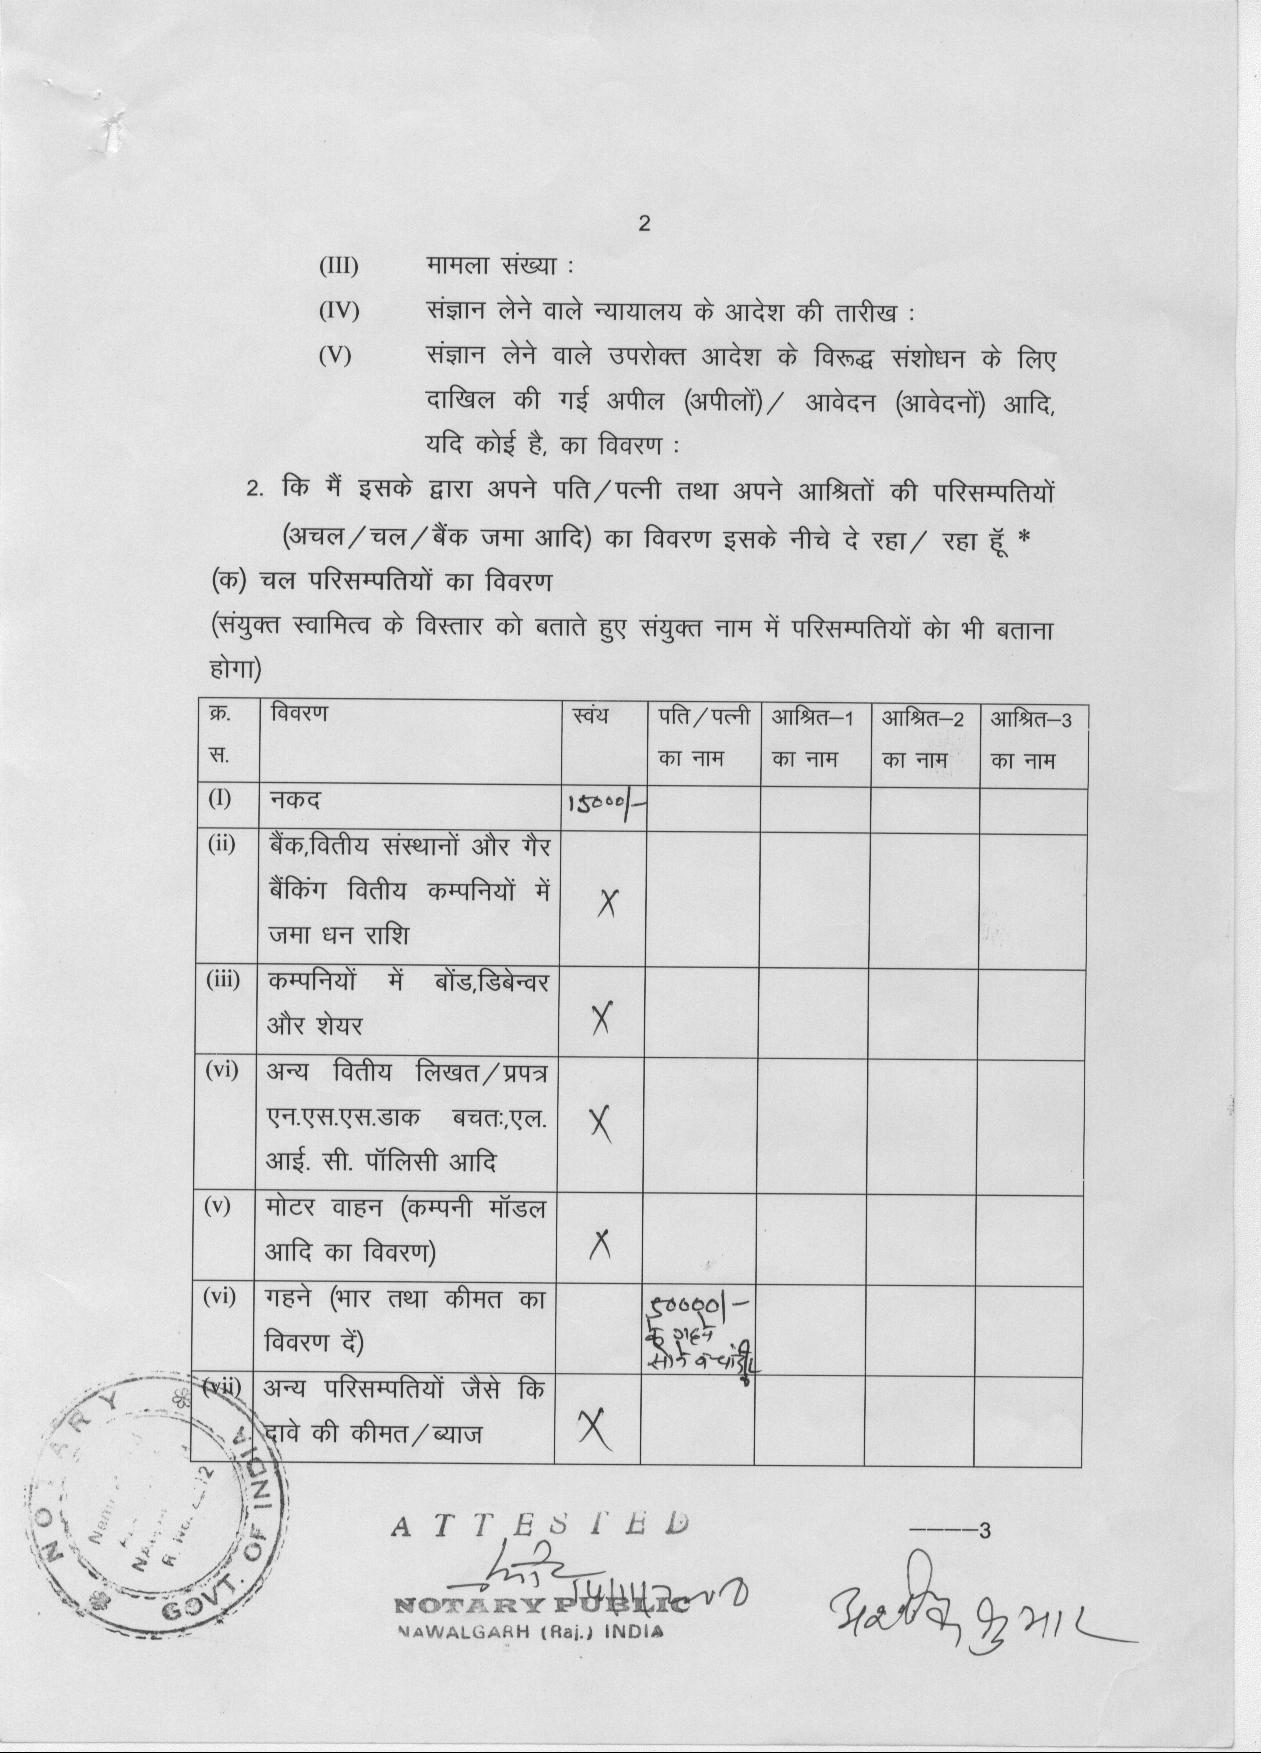 2
(III) मामला संख्या :
(IV) संज्ञान लेने वाले न्यायालय के आदेश की तारीख :
(V) संज्ञान लेने वाले उपरोक्त आदेश के विरूद्ध संशोधन के लिए
दाखिल की गई अपील (अपीलों)/ आवेदन (आवेदनों) आदि,
यदि कोई है, का विवरण :
2. कि मैं इसके द्वारा अपने पति/पत्नी तथा अपने आश्रितों की परिसम्पतियों
(अचल/चल/बैंक जमा आदि) का विवरण इसके नीचे दे रहा/ रहा हूॅ *
(क) चल परिसम्पतियों का विवरण
(संयुक्त स्वामित्व के विस्तार को बताते हुए संयुक्त नाम में परिसम्पतियों केा भी बताना
होगा)
क्र. विवरण स्वंय पति/पत्नी आश्रित–1 आश्रित–2 आश्रित–3
स. का नाम का नाम का नाम का नाम
(I) नकद 15000/–
(ii) बैंक,वितीय संस्थानों और गैर
बैंकिंग वितीय कम्पनियों में X
जमा धन राशि
(iii) कम्पनियों में बोंड,डिबेन्वर
और शेयर X
(vi) अन्य वितीय लिखत/प्रपत्र
एन.एस.एस.डाक बचतः,एल. X
आई. सी. पॉलिसी आदि
(v) मोटर वाहन (कम्पनी मॉडल
आदि का विवरण) X
(vi) गहने (भार तथा कीमत का 50000/–
विवरण दें) के गहने
सोने व चांदी
(vii) अन्य परिसम्पतियों जैसे कि
दावे की कीमत/ब्याज X
NOTARY
GOVT. OF INDIA
ATTESTED
––––3
NOTARY PUBLIC
NAWALGARH (Raj.) INDIA
अशोक कुमार